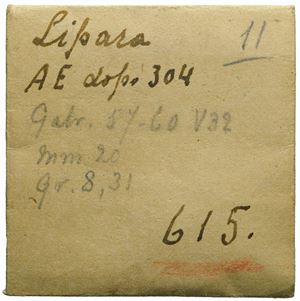 Lipara
11
AE dopo 304
Gabr. 57-60 V32
mm 20
gr. 8,31
615.